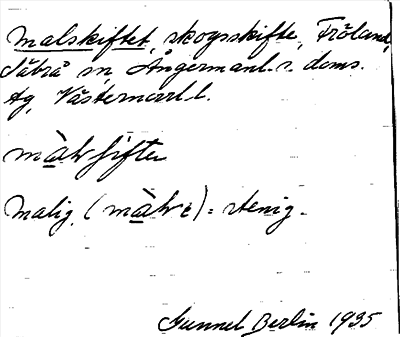 Malskiftet, skogsskifte, Fröland,
Säbrå sn, Ångermanl. s. doms.
tg, Västernorrl. l.
Malig (           ) = stenig.
Gunnel Berlin 1935